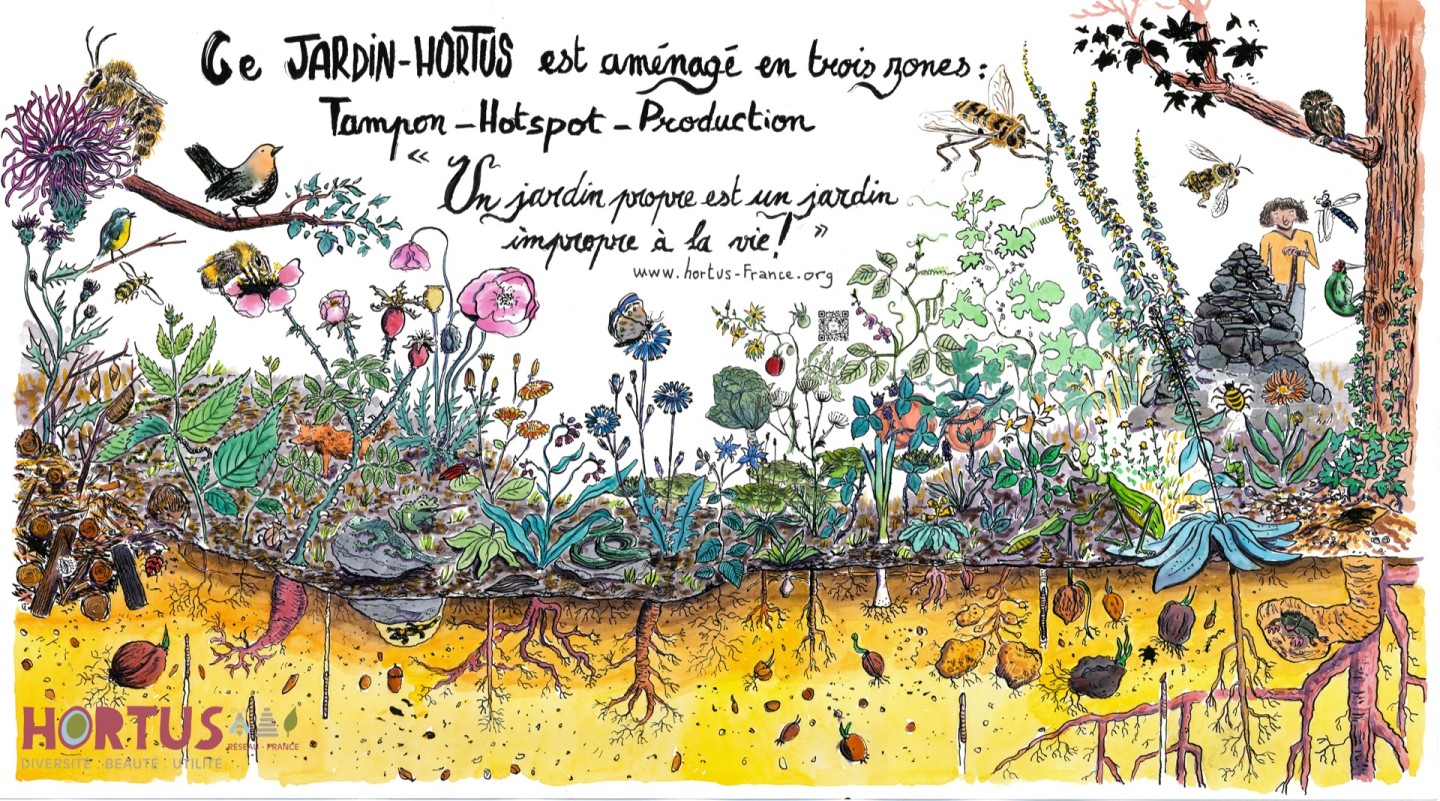 Ce JARDIN-HORTUS est aménagé en trois zones:
Tampon - Hotspot - Production
"Un jardin propre est un jardin
impropre à la vie!"
www.hortus-France.org
HORTUS
RÉSEAU - FRANCE
DIVERSITÉ · BEAUTÉ · UTILITÉ